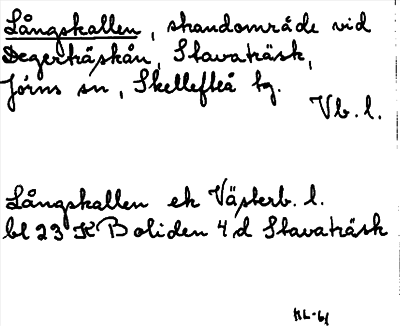 Långskallen, strandområde vid
Degerträskån, Stavaträsk,
Jörns sn, Skellefteå tg.
Vb. l.
Långskallen ek Västerb. l.
bl 23 K Boliden 4 d Stavaträsk
KL-61